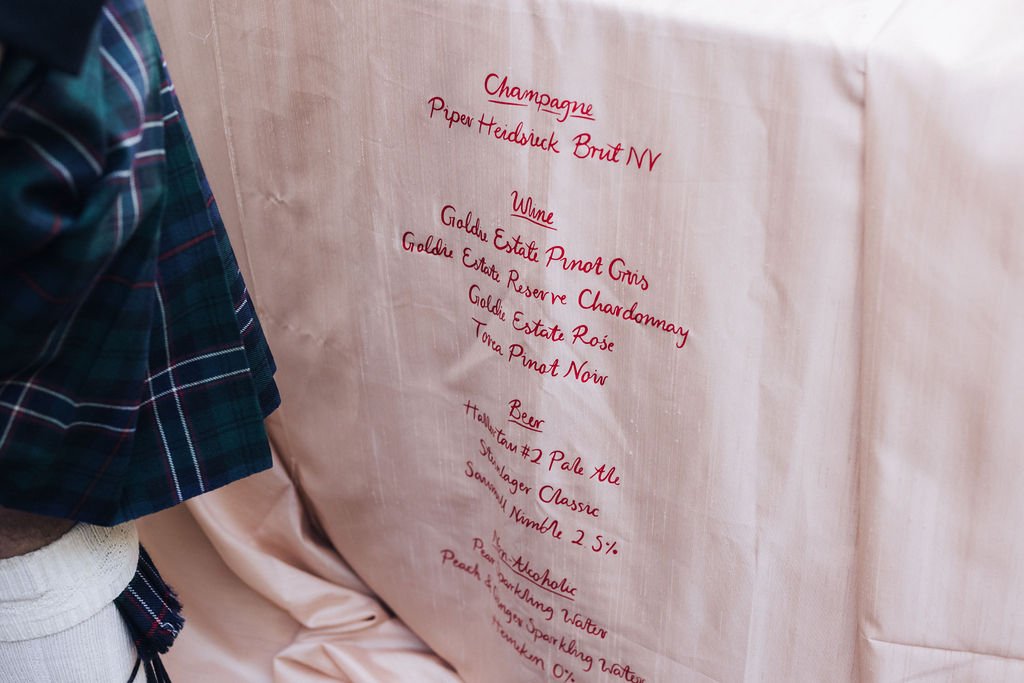 Champagne
Piper Heidsieck Brut NV
Wine
Goldie Estate Pinot Gris
Goldie Estate Reserve Chardonnay
Goldie Estate Rosé
Torea Pinot Noir
Beer
Hallertau #2 Pale Ale
Steinlager Classic
Sawmill Nimble 2.5%
Non-Alcoholic
Pear Sparkling Water
Peach & Ginger Sparkling Water
Heineken 0%